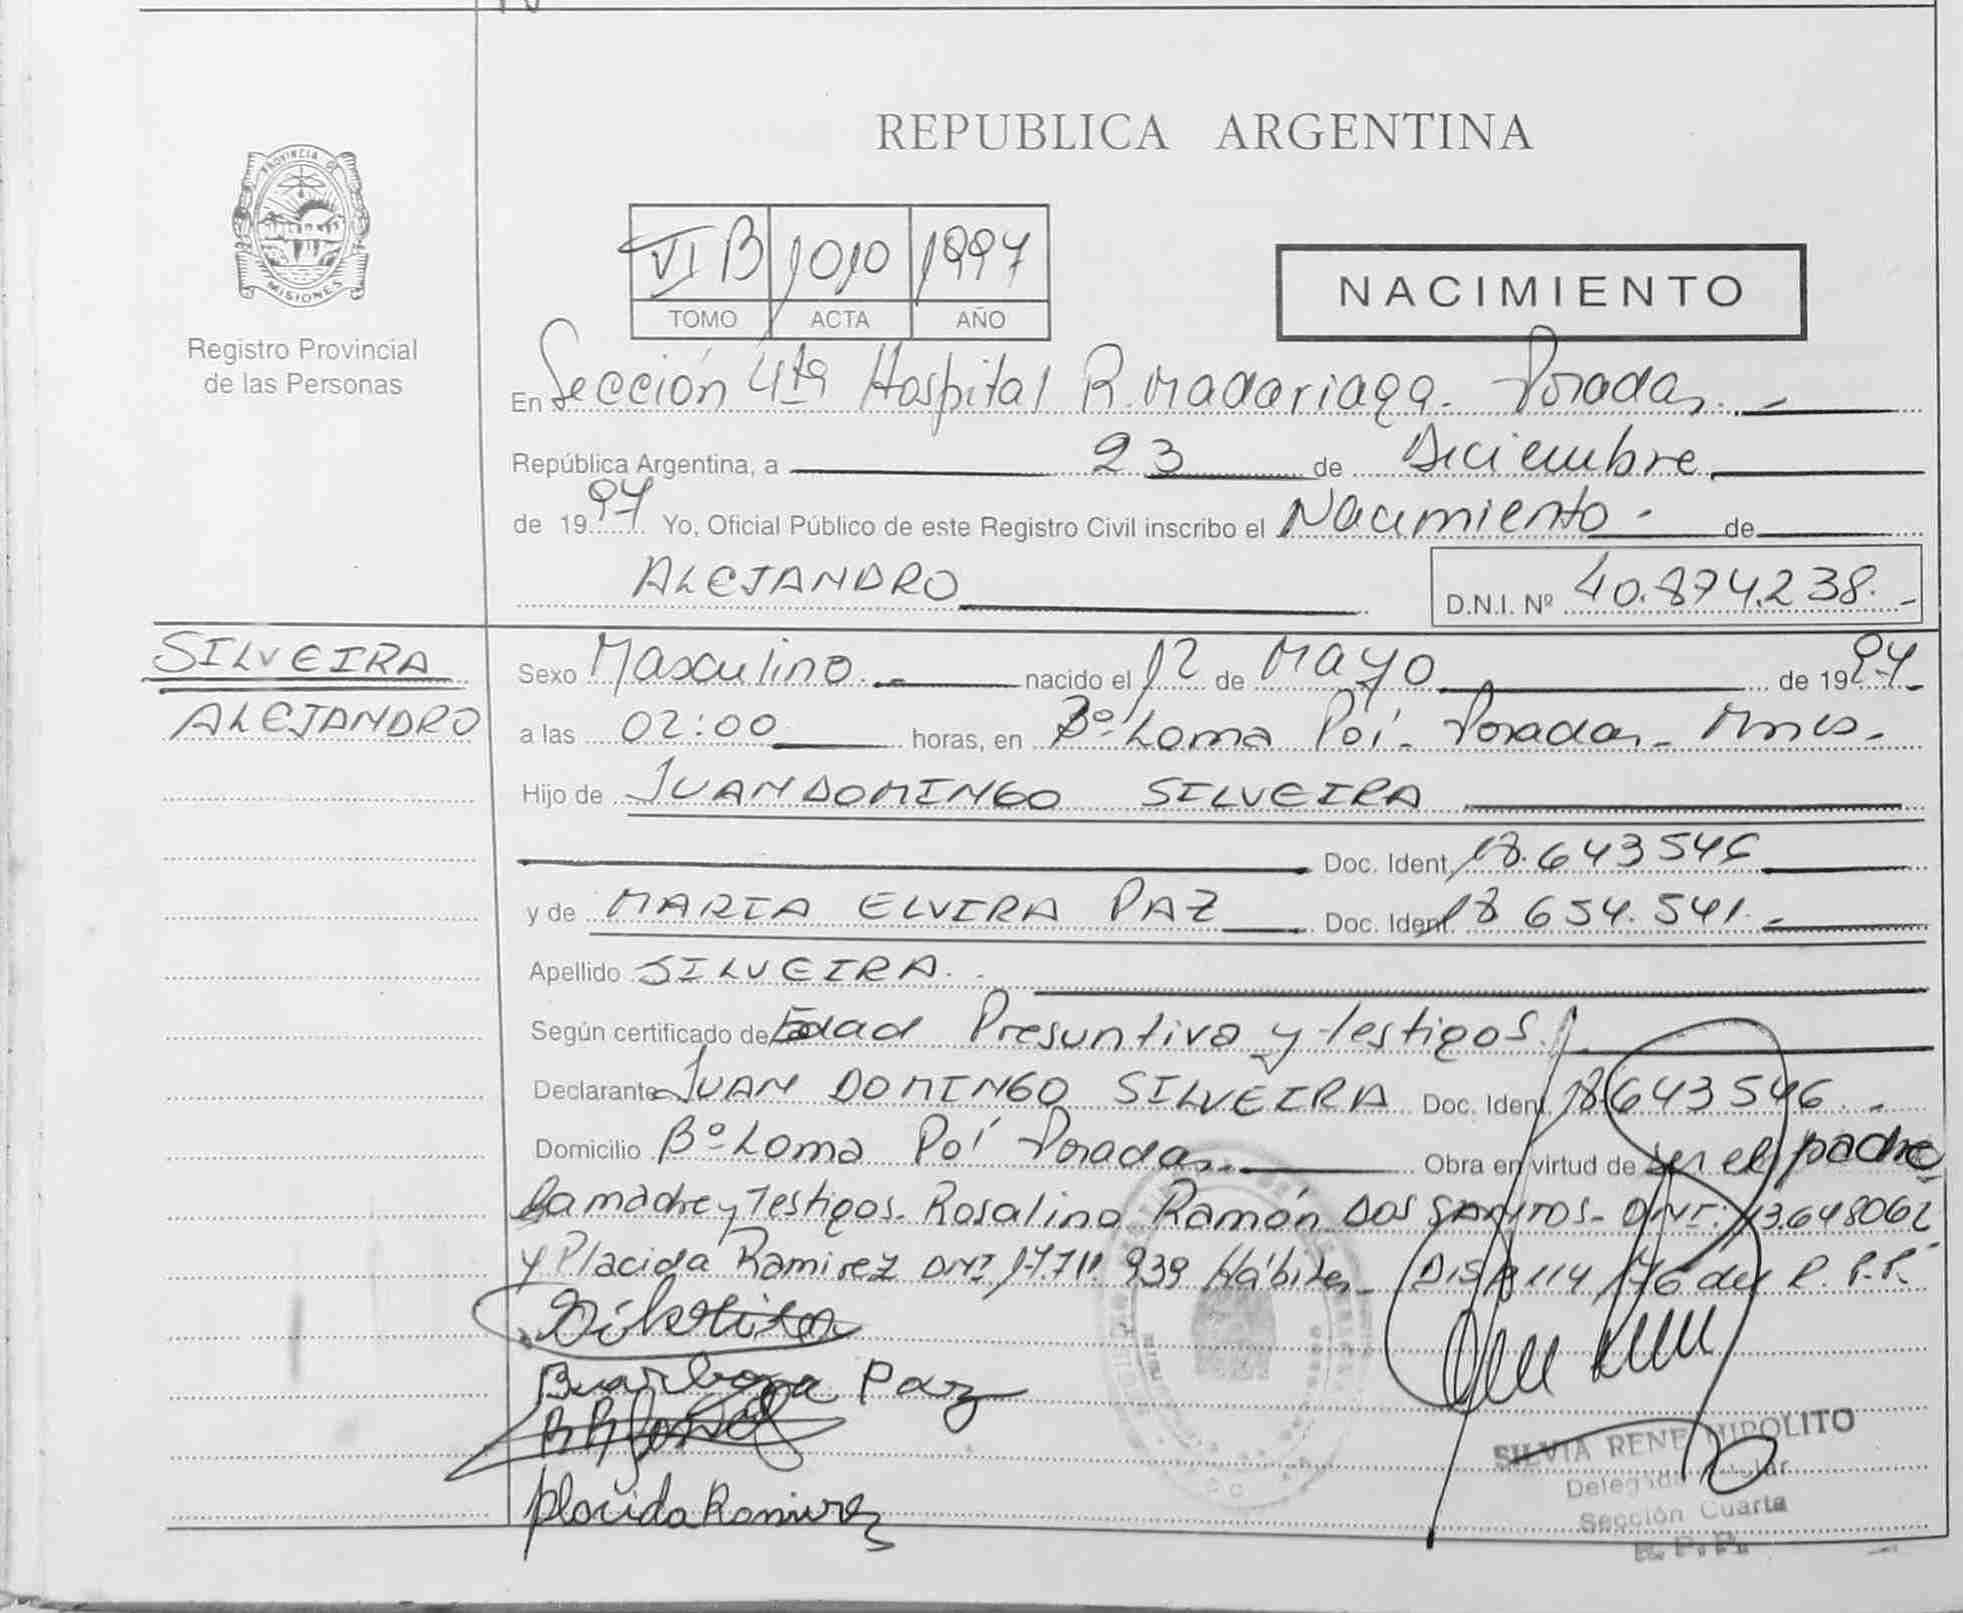 REPUBLICA ARGENTINA
PROVINCIA DE MISIONES
Registro Provincial
de las Personas
VI B 1010 1997
TOMO ACTA AÑO
NACIMIENTO
En Sección 4ta Hospital R. Madariaga. Posadas. -
República Argentina, a 23 de Diciembre
de 1997 Yo, Oficial Público de este Registro Civil inscribo el Nacimiento - de
ALEJANDRO D.N.I. Nº 40.874.238. -
SILVEIRA
ALEJANDRO
Sexo Masculino. - nacido el 12 de Mayo de 1997. -
a las 02:00 horas, en Bº Loma Poí - Posadas - Mnes -
Hijo de JUAN DOMINGO SILVEIRA
Doc. Ident. 18.643546
y de MARIA ELVIRA PAZ Doc. Ident. 18 654.541. -
Apellido SILVEIRA.
Según certificado de Edad Presuntiva y testigos.
Declarante JUAN DOMINGO SILVEIRA Doc. Ident. 18.643546 -
Domicilio Bº Loma Poí Posadas. Obra en virtud de ser el padre
la madre y Testigos. Rosalino Ramón DOS SANTOS - DNI: 13.648062
y Placida Ramirez DNI 17.711.939 Hábiles - DISP. 114/76 del R.P.P.
Paz
Placida Ramirez
SILVIA RENE HIPOLITO
Delegada Titular
Sección Cuarta
R. P. P.